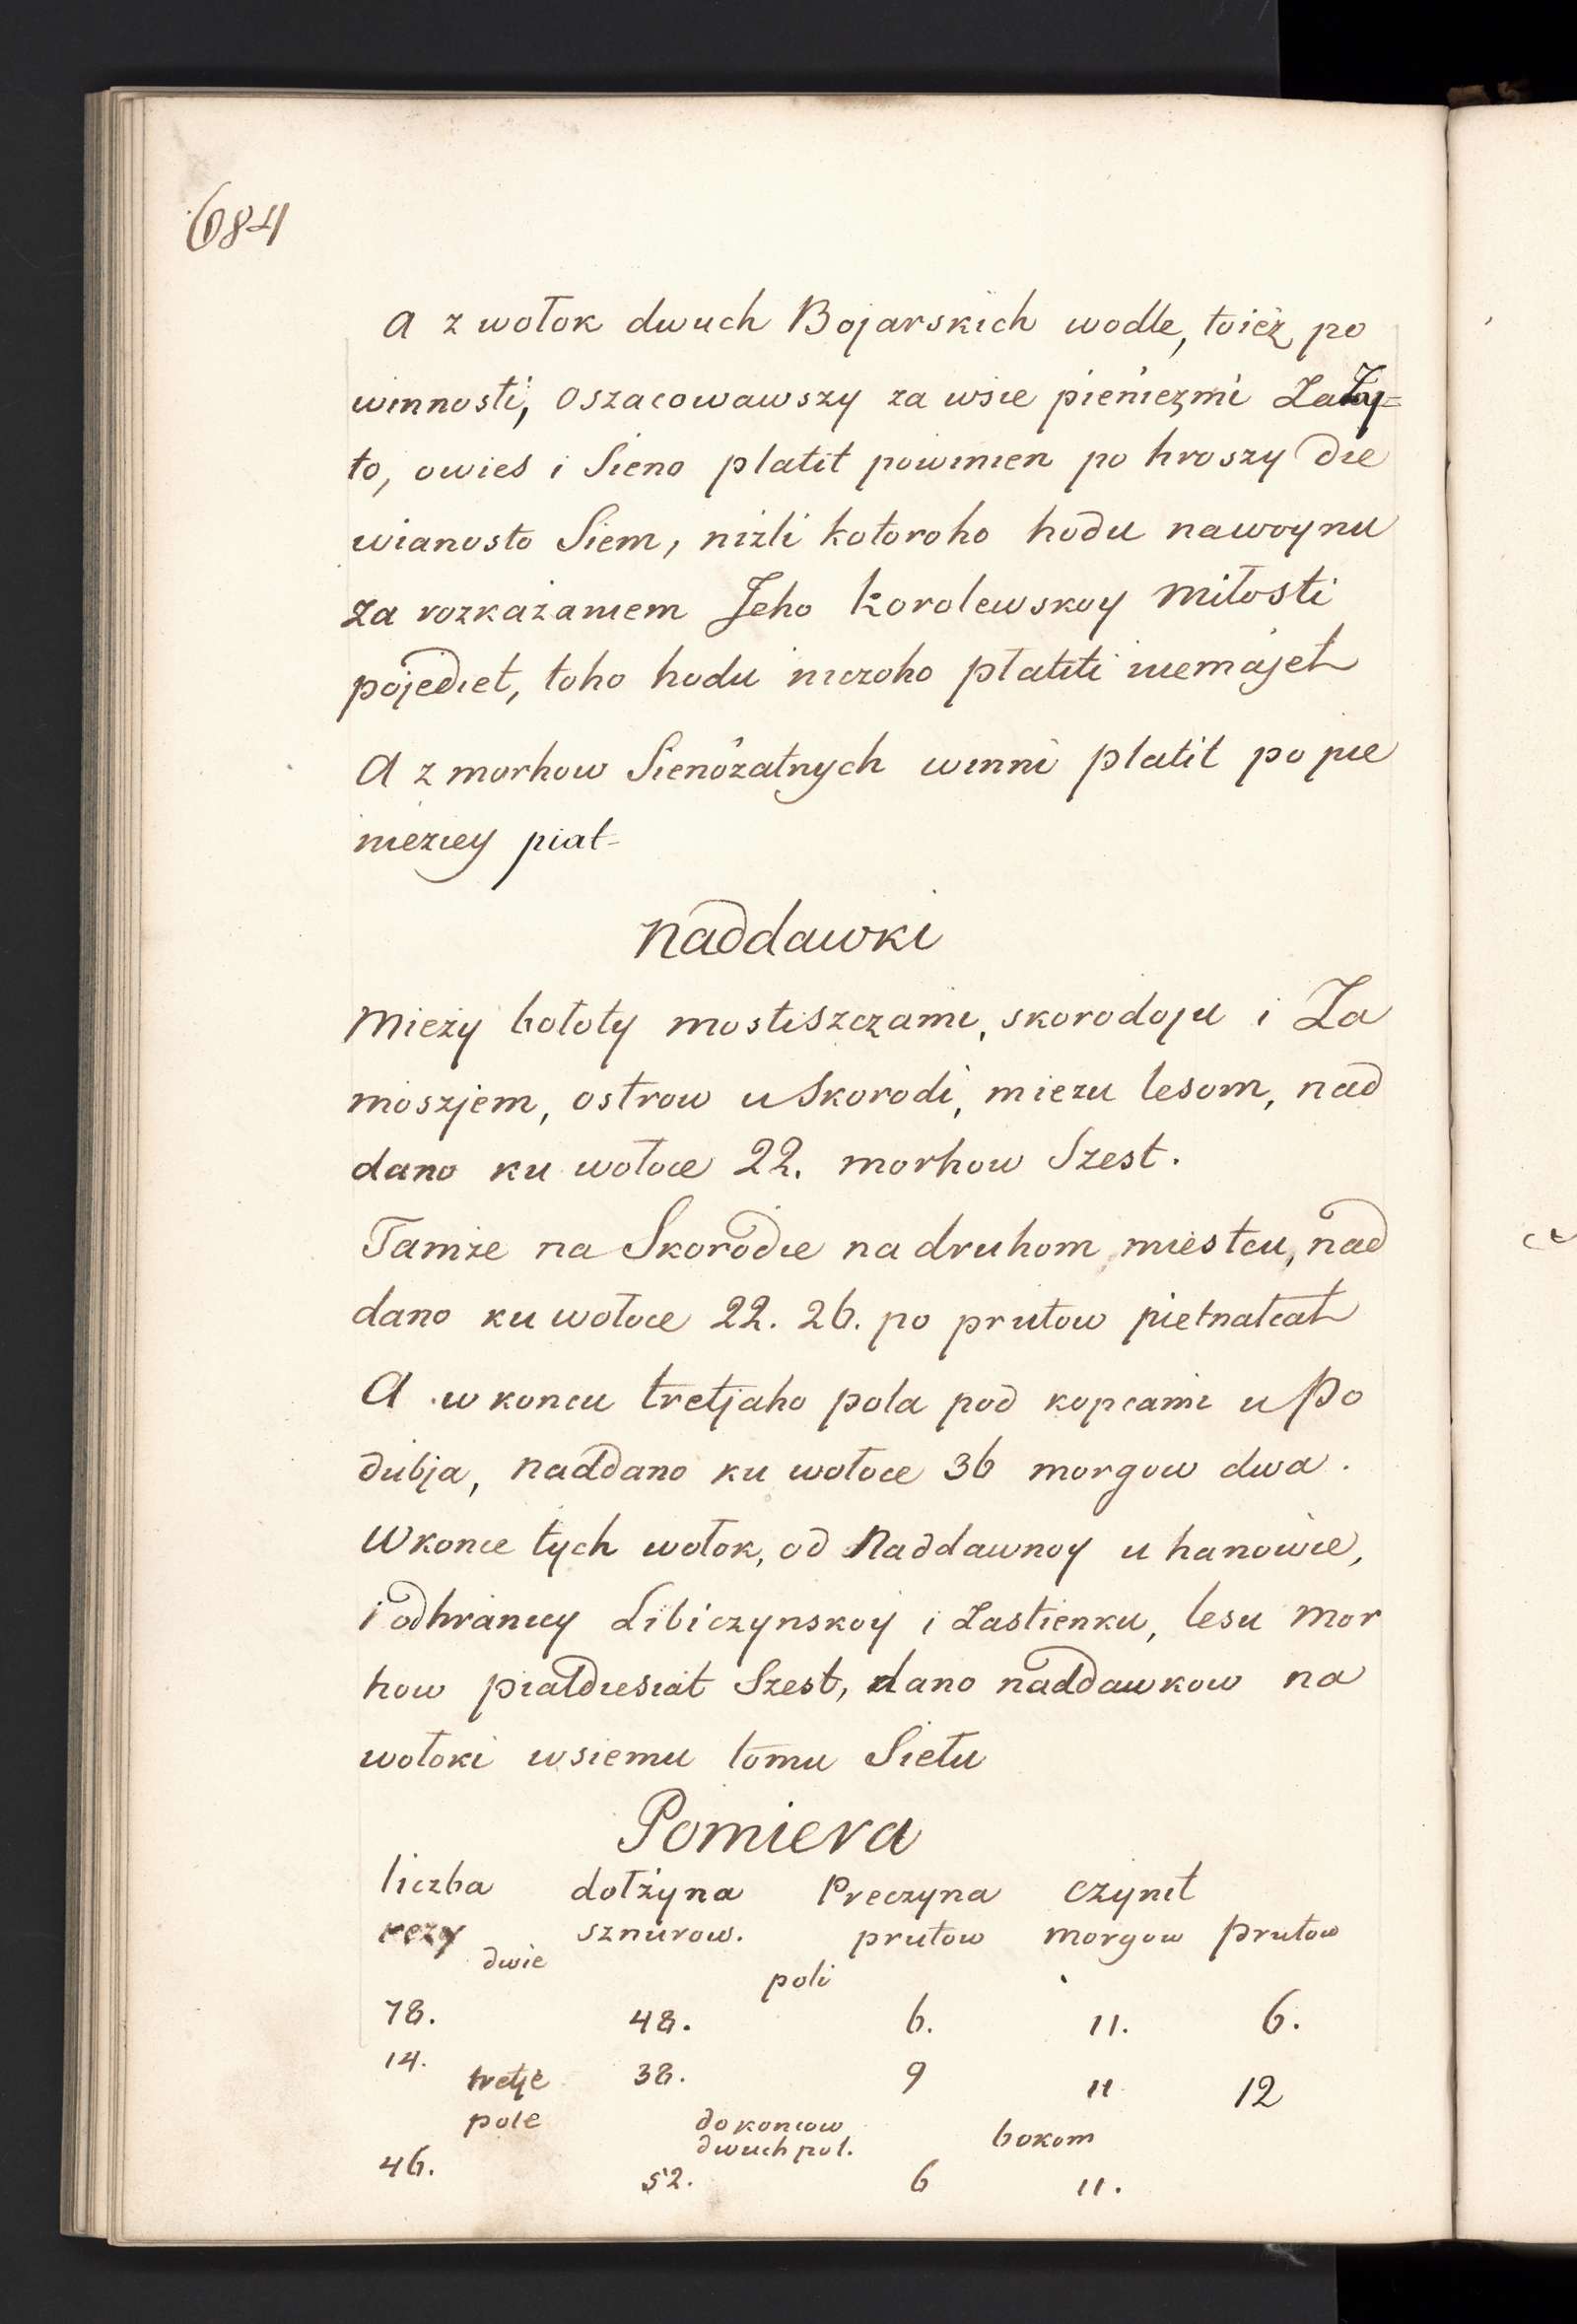 684
A z wołok dwuch Bojarskich wodle, toiéż po
winnosti, oszacowawszy za wsie pieniezmi Za ży=
to, owies i Sieno platit powinien po hroszy die
wianosto Siem, niżli kotoroho hodu nawoynu
za rozkazaniem Jeho Korolewskoy miłosti
pojediet, toho hodu niczoho płatiti niemajet
A z morhow Sienożatnych winni platit po pie
nieziey piat-
Naddawki
Mieży bołoty mostiszczami, skorodoju i Za
moszjem, ostrow u Skorodi, miezu lesom, nad
dano ku wołoce 22. morhow Szest.
Tamże na Skorodie na druhom miestcu, nad
dano ku wołoce 22. 26. po prutow pietnatcat
A w koncu tretjaho pola pod kopcami u Po
dubja, naddano ku wołoce 36 morgow dwa.
Wkonce tych wołok, od Naddawnoy u hanowie,
i odhranicy Libiczynskoy i Zastienku, lesu mor
how piatdiesiat Szest, dano naddawkow na
wołoki wsiemu tomu Siełu
Pomiera
liczba dołżyna Preczyna czynit
rezy sznurow. prutow morgow prutow
dwie poli
78. 48. 6. 11. 6.
14. 38. 9 11 12
tretje
pole do koncow bokom
dwuch pol.
46. 52. 6 11.